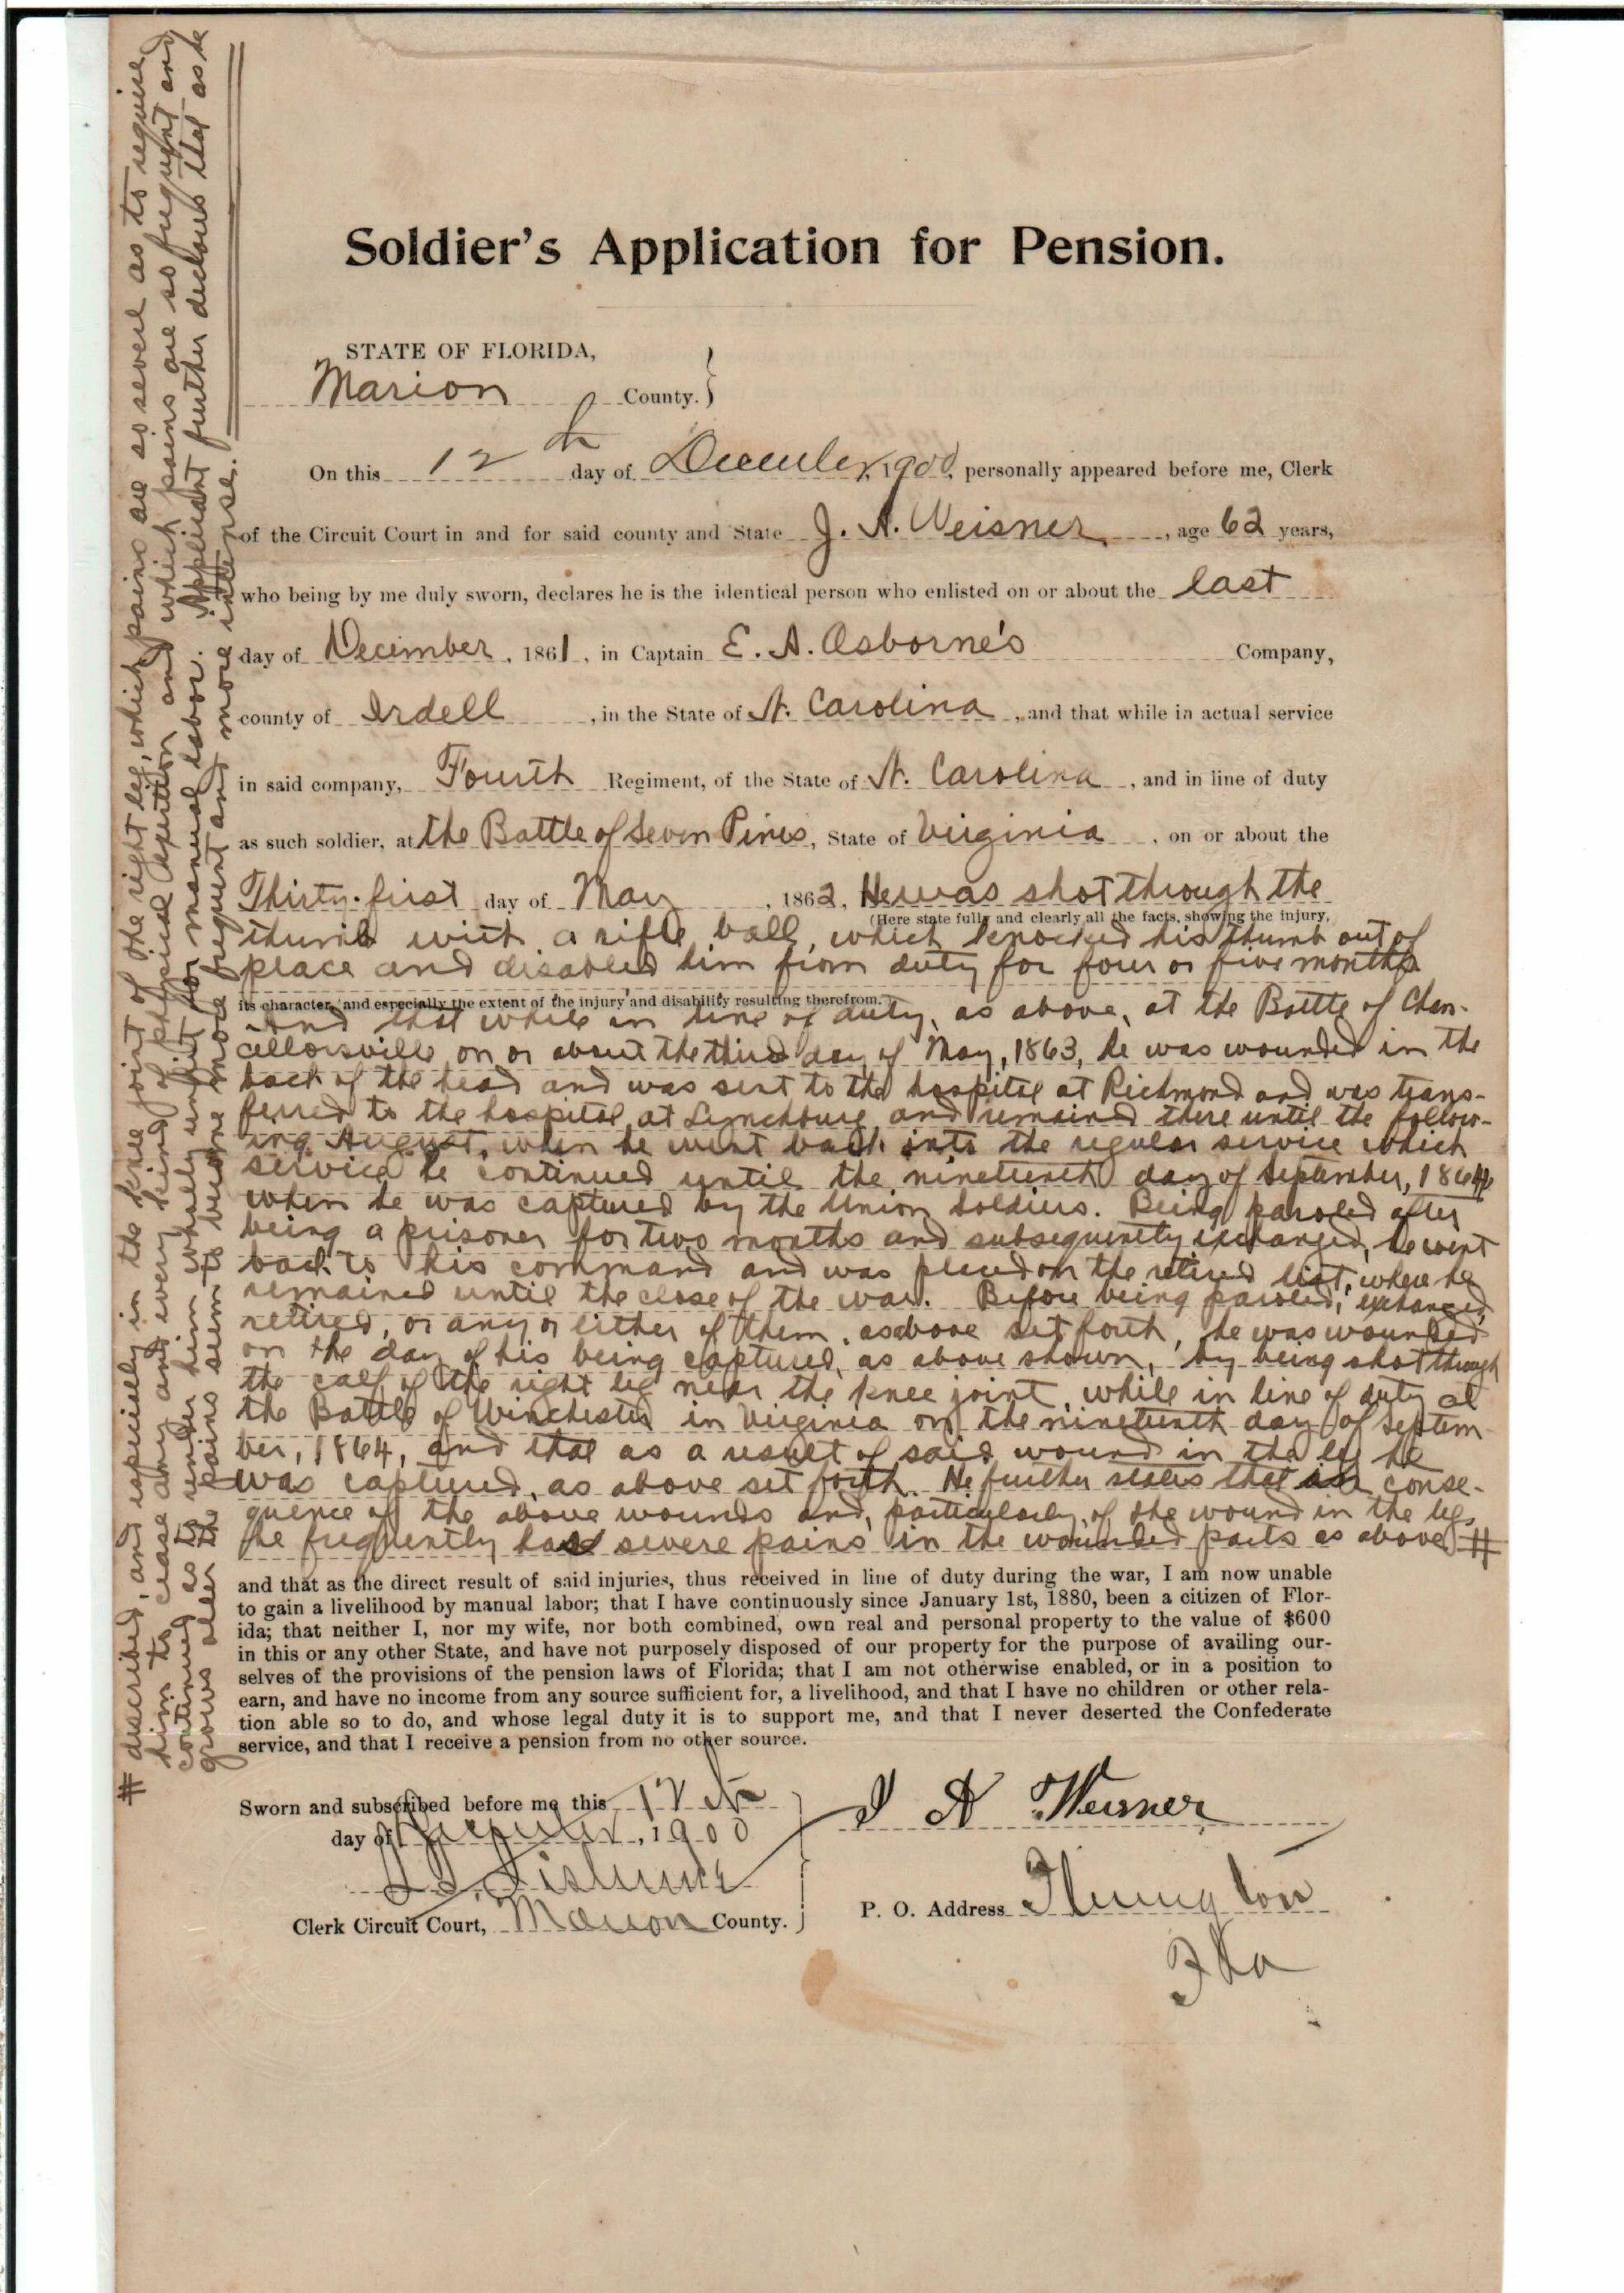 Soldier's Application for Pension.
STATE OF FLORIDA,
Marion County. }
On this 12th day of December, 1900, personally appeared before me, Clerk
of the Circuit Court in and for said county and State J. A. Weisner, age 62 years,
who being by me duly sworn, declares he is the identical person who enlisted on or about the last
day of December, 1861, in Captain E. A. Osborne's Company,
county of Irdell, in the State of N. Carolina, and that while in actual service
in said company, Fourth Regiment, of the State of N. Carolina, and in line of duty
as such soldier, at the Battle of Seven Pines, State of Virginia, on or about the
Thirty-first day of May, 1862, He was shot through the
(Here state fully and clearly all the facts, showing the injury,
thumb with a rifle ball, which knocked his thumb out of
place and disabled him from duty for four or five months
its character, and especially the extent of the injury and disability resulting therefrom.
And that while in line of duty, as above, at the Battle of Chan-
cellorsville, on or about the third day of May, 1863, he was wounded in the
back of the head and was sent to the hospital at Richmond and was trans-
ferred to the hospital at Lynchburg and remained there until the follow-
ing August, when he went back into the regular service which
service he continued until the nineteenth day of September, 1864
when he was captured by the Union Soldiers. Being paroled after
being a prisoner for two months and subsequently exchanged, he went
back to his command and was placed on the retired list, where he
remained until the close of the war. Before being paroled, exchanged,
retired, or any or either of them, as above set forth, he was wounded
on the day of his being captured, as above shown, by being shot through
the calf of the right leg near the knee joint, while in line of duty at
the Battle of Winchester in Virginia on the nineteenth day of Septem-
ber, 1864, and that as a result of said wound in the leg he
was captured, as above set forth. He further states that in conse-
quence of the above wounds and, particularly, of the wound in the leg,
he frequently has severe pains in the wounded parts as above #
and that as the direct result of said injuries, thus received in line of duty during the war, I am now unable
to gain a livelihood by manual labor; that I have continuously since January 1st, 1880, been a citizen of Flor-
ida; that neither I, nor my wife, nor both combined, own real and personal property to the value of $600
in this or any other State, and have not purposely disposed of our property for the purpose of availing our-
selves of the provisions of the pension laws of Florida; that I am not otherwise enabled, or in a position to
earn, and have no income from any source sufficient for, a livelihood, and that I have no children or other rela-
tion able so to do, and whose legal duty it is to support me, and that I never deserted the Confederate
service, and that I receive a pension from no other source.
Sworn and subscribed before me this 12th
day of December, 1900
Clerk Circuit Court, Marion County.
J A Weisner
P. O. Address
Fla
# described, and especially in the knee joint of the right leg, which pains are so severe as to require
him to cease any and every kind of physical exertion and which pains are so frequent and
continued as to render him wholly unfit for manual labor. Applicant further declares that as he
grows older the pains seem to become more frequent and more intense.